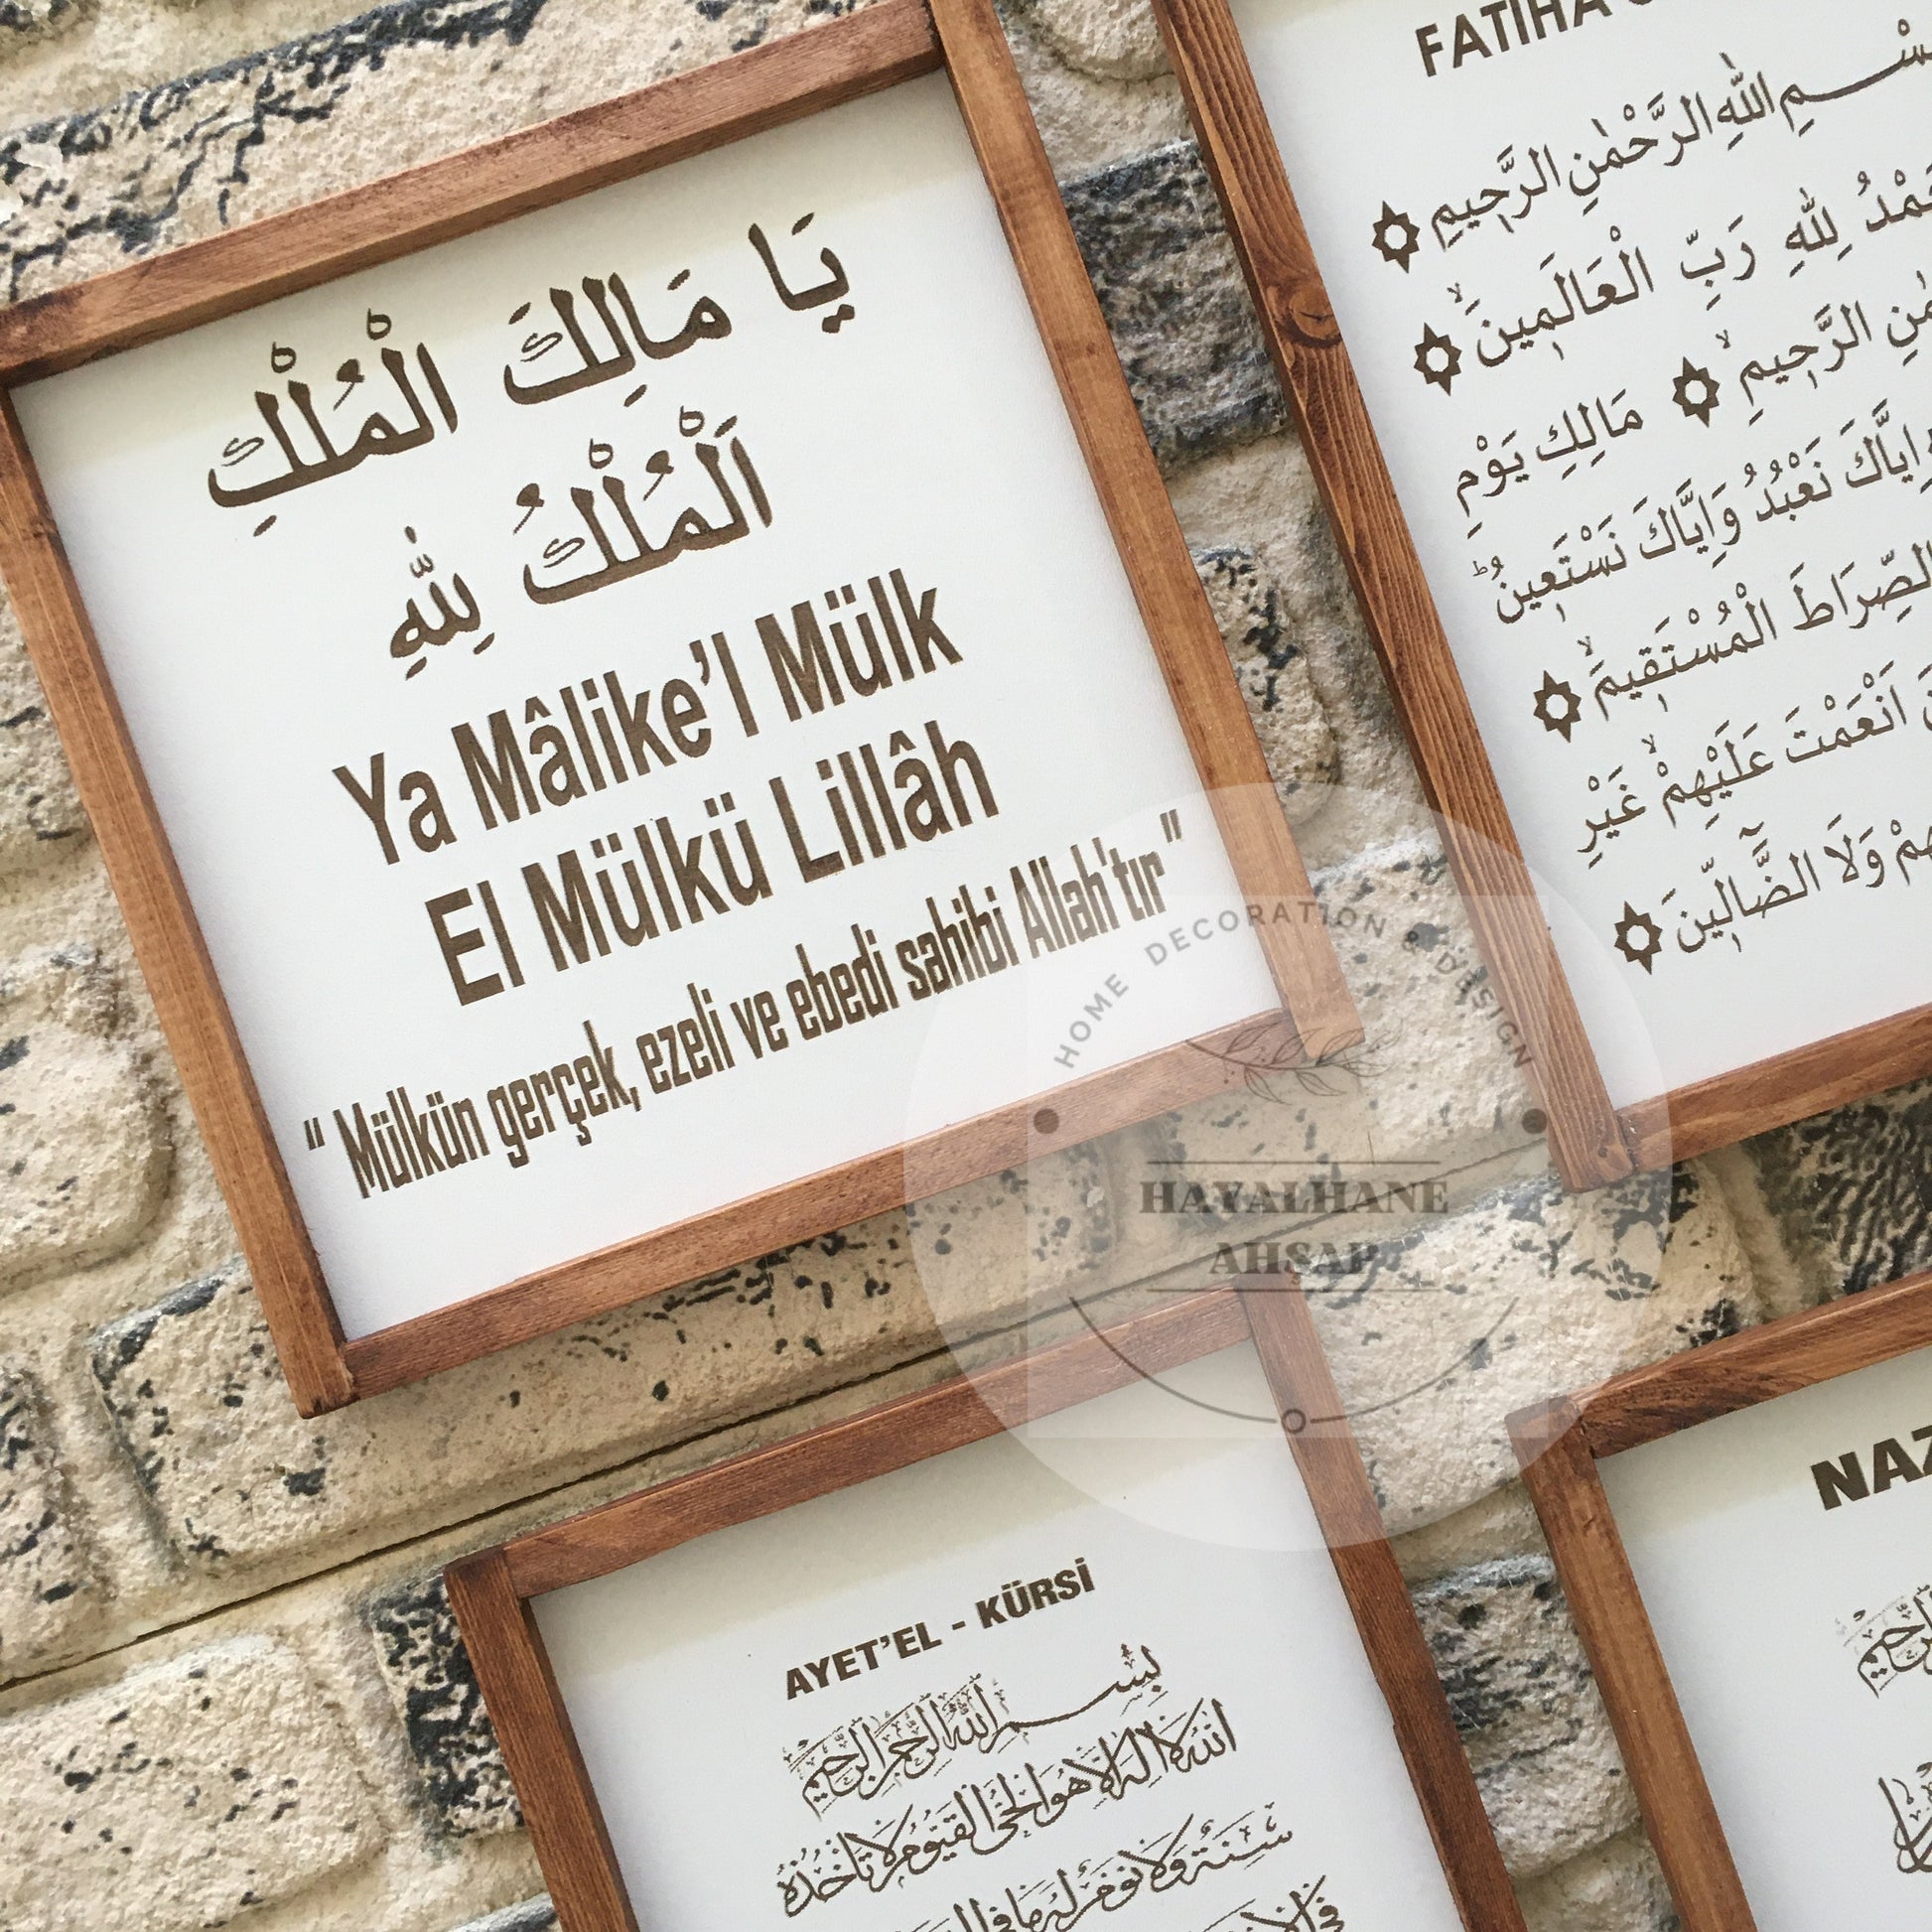 يَا مَالِكَ الْمُلْكِ
اَلْمُلْكُ لِلّٰهِ
Ya Mâlike’l Mülk
El Mülkü Lillâh
“ Mülkün gerçek, ezeli ve ebedi sahibi Allah'tır”
FATİHA
الرَّحْمٰنِ الرَّحِيمِ
لِلّٰهِ رَبِّ الْعَالَمِينَۙ
الرَّحِيمِۙ
مَالِكِ يَوْمِ
اِيَّاكَ نَعْبُدُ وَاِيَّاكَ نَسْتَعِينُۜ
الصِّرَاطَ الْمُسْتَقِيمَۙ
اَنْعَمْتَ عَلَيْهِمْۙ غَيْرِ
وَلَا الضَّٓالِّينَ
HOME DECORATION & DESIGN
HAYALHANE
AHŞAP
AYET’EL - KÜRSİ
بِسْمِ اللّٰهِ الرَّحْمٰنِ الرَّحِيمِ
اَللّٰهُ لَا اِلٰهَ اِلَّا هُوَ الْحَيُّ الْقَيُّومُ لَا تَأْخُذُهُ
سِنَةٌ وَلَا نَوْمٌ لَهُ مَا فِي
NAZ